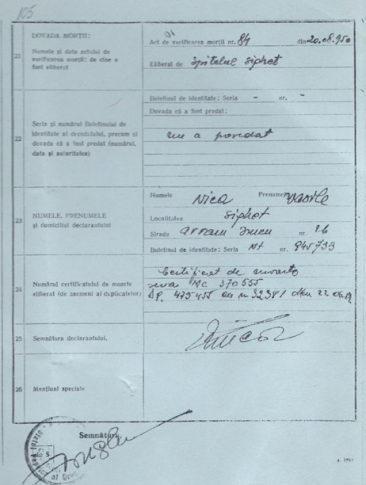 105
DOVADA MORȚII:
Numele și data actului de verificarea morții; de cine a fost eliberat
21
Act de verificarea morții nr. 84 din 20.08.950
Eliberat de Spitalul Sighet
Buletinul de identitate: Seria - nr. -
Dovada că a fost predat:
22
Seria și numărul Buletinului de identitate al decedatului, precum și dovada că a fost predat (numărul, data și autoritatea)
nu a posedat
23
NUMELE, PRENUMELE și domiciliul declarantului
Numele Nica Prenumele Vasile
Localitatea Sighet
Strada Avram Iancu nr. 26
Buletinul de identitate: Seria nr. 945733
24
Numărul certificatului de moarte eliberat (de asemeni al duplicatelor)
Certificat de moarte
seria Mc 370655
25
Semnătura declarantului,
26
Mențiuni speciale
Semnătura